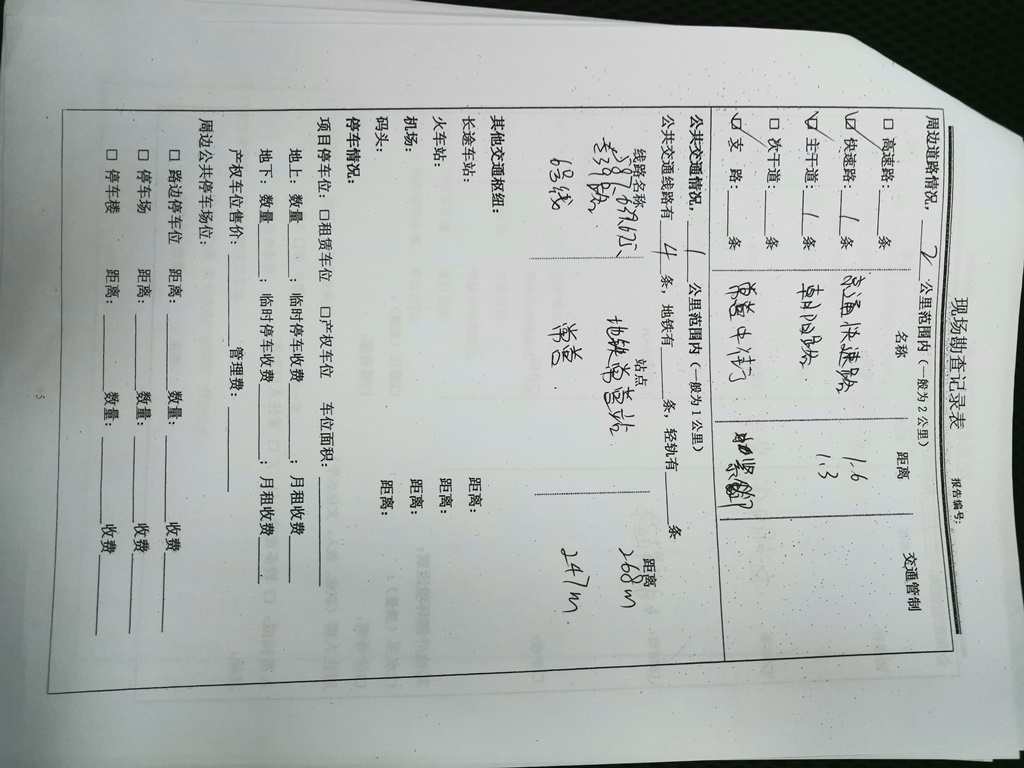 现场勘查记录表
报告编号:
周边道路情况, 2 公里范围内(一般为2公里)
名称 距离 交通管制
□ 高速路: 条
☑ 快速路: 1 条 京通快速路 1.6
☑ 主干道: 1 条 朝阳路 1.3
□ 次干道: 条
☑ 支 路: 条 常营中街 紧邻
公共交通情况, 1 公里范围内(一般为1公里)
公共交通线路有 4 条, 地铁有 条, 轻轨有 条
线路名称 站点 距离
地铁常营站 268m
6号线 常营 247m
其他交通枢纽:
长途车站: 距离:
火车站: 距离:
机场: 距离:
码头: 距离:
停车情况:
项目停车位: □租赁车位 □产权车位 车位面积:
地上: 数量 ; 临时停车收费 ; 月租收费
地下: 数量 ; 临时停车收费 ; 月租收费 .
产权车位售价: 管理费:
周边公共停车场位:
□ 路边停车位 距离: 数量: 收费
□ 停车场 距离: 数量: 收费
□ 停车楼 距离: 数量: 收费
5